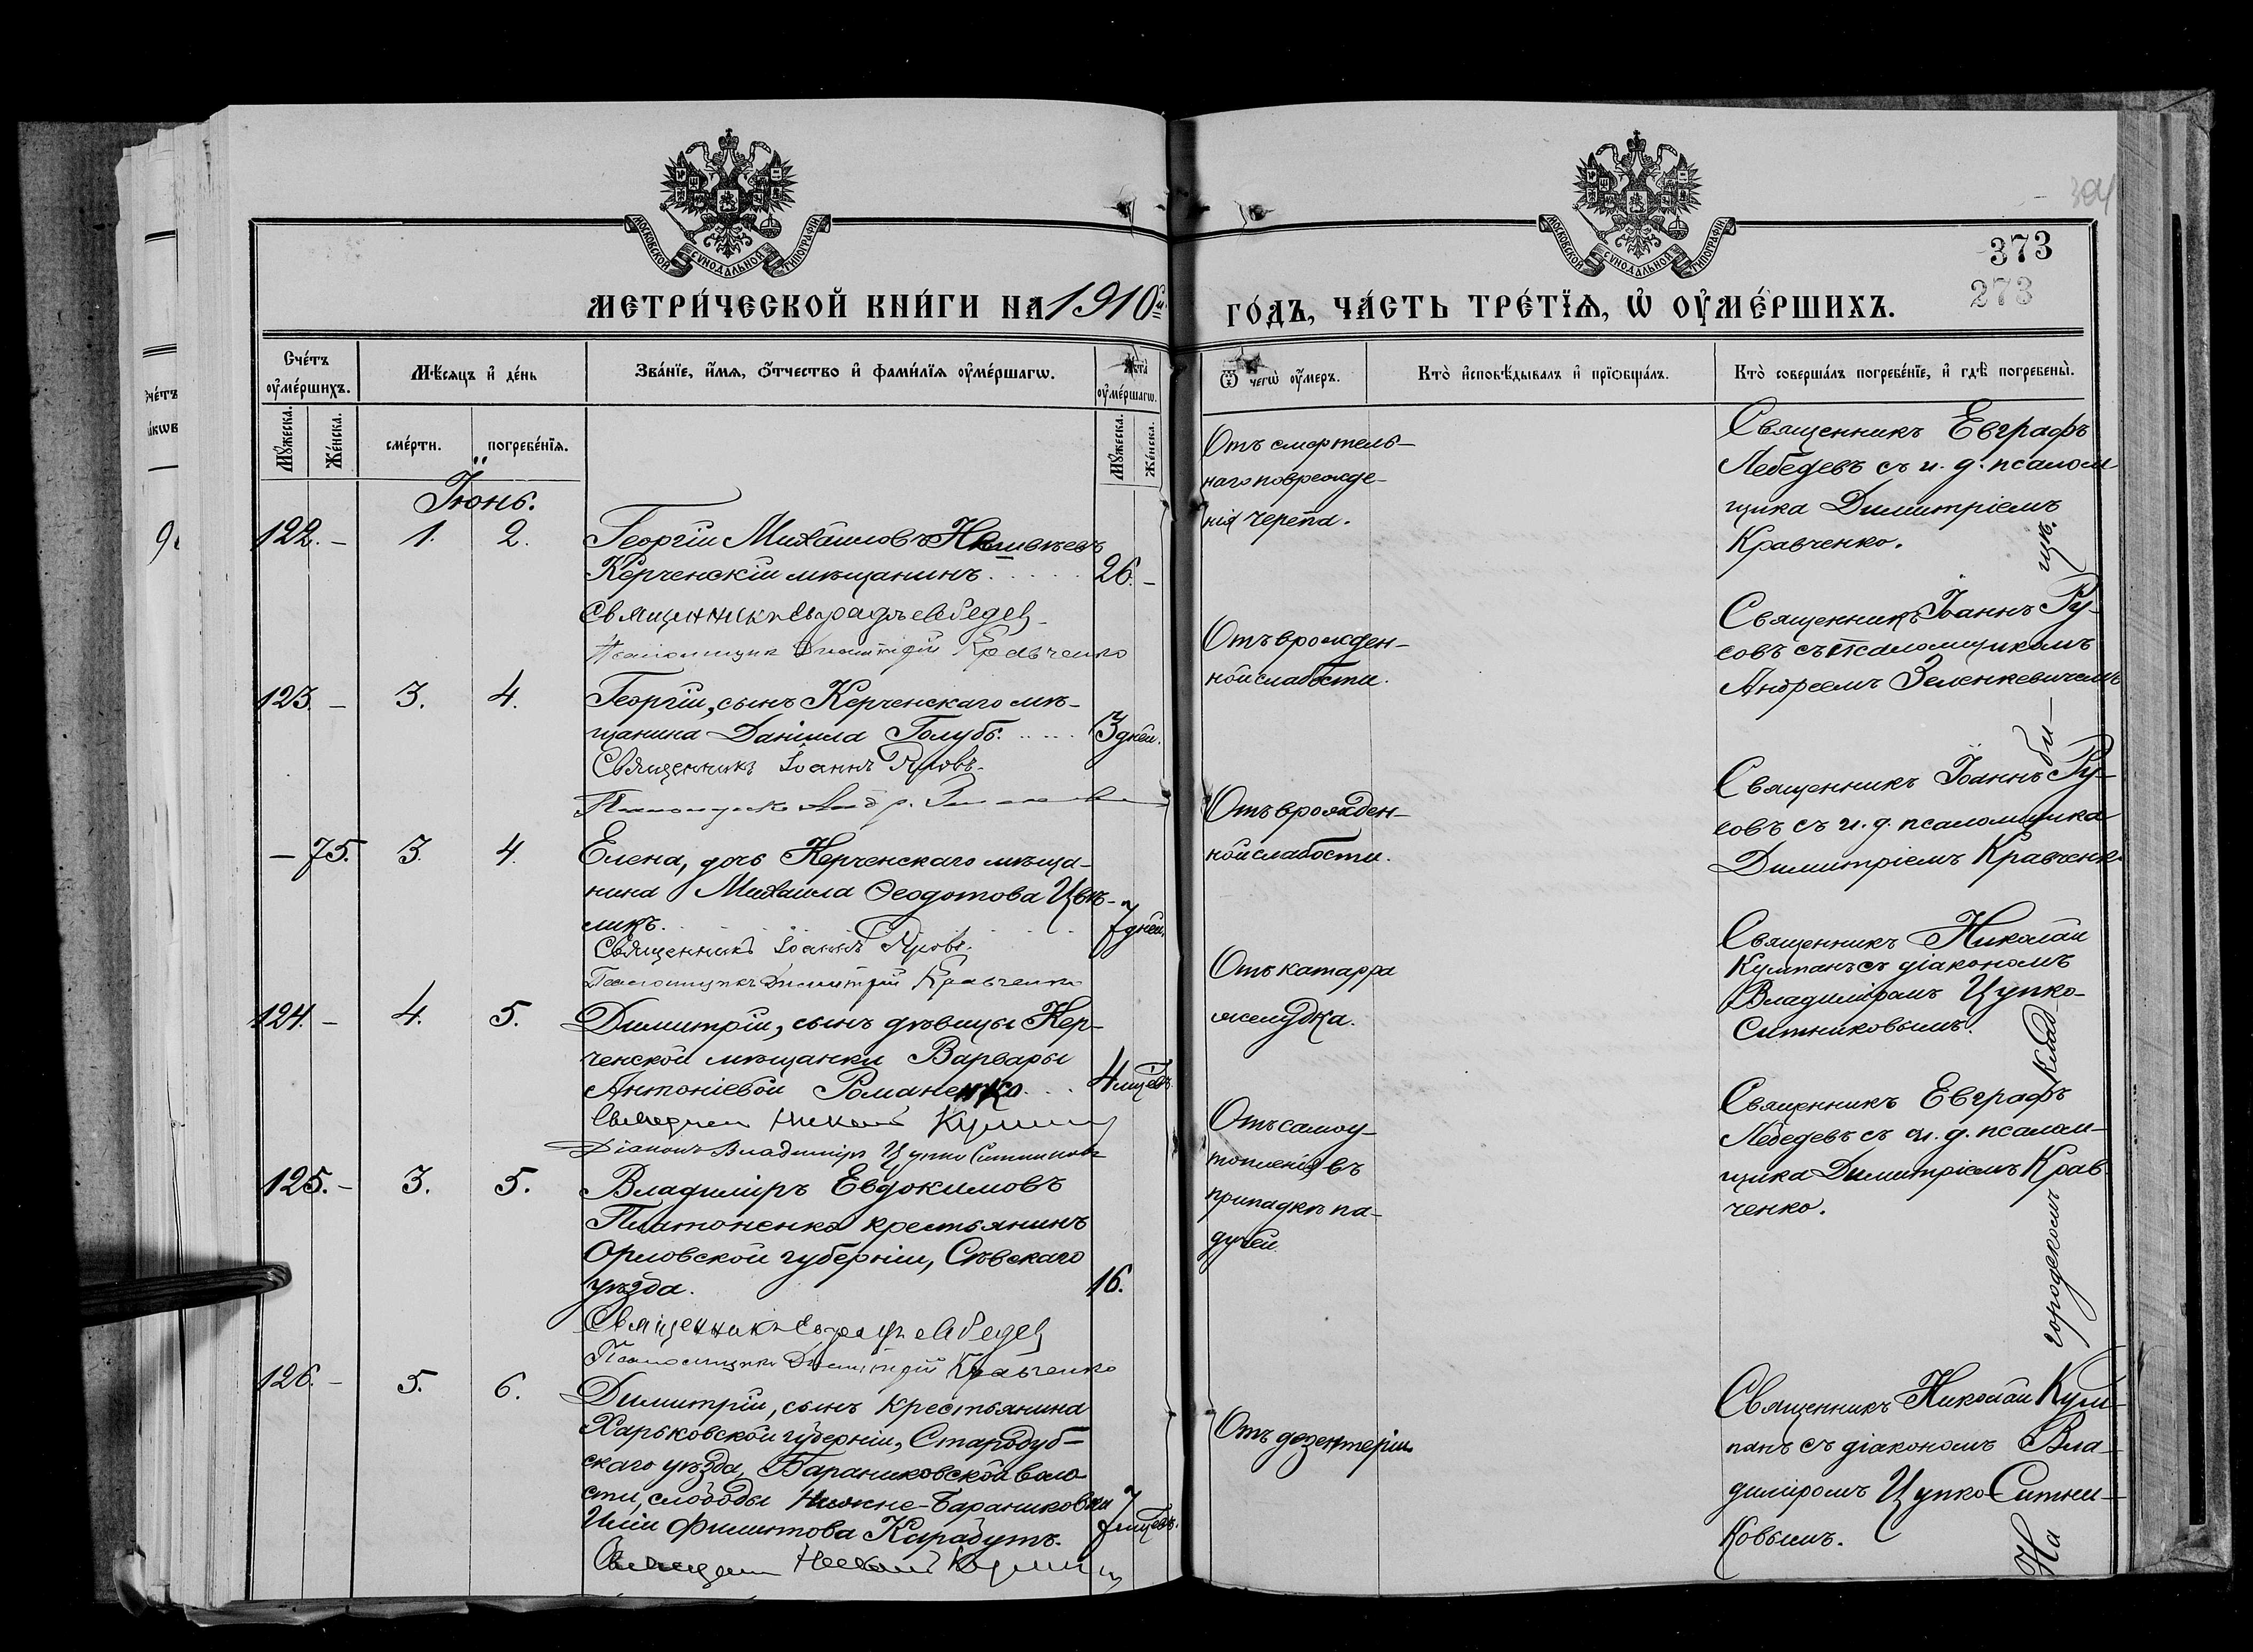 МОСКОВСКОЙ СУНОДАЛЬНОЙ ТИПОГРАФІИ
МОСКОВСКОЙ СУНОДАЛЬНОЙ ТИПОГРАФІИ
373
273
МЕТРИ́ЧЕСКОЙ КНИ́ГИ НА 1910й
ГО́ДЪ, ЧА́СТЬ ТРЕ́ТЇѦ, Ѡ ОУ҆МЕ́РШИХЪ.
Сче́тъ оу҆ме́ршихъ.
Мѣ́сяцъ и҆ де́нь
Зва́нїе, и҆́мя, ѻ҆́тчество и҆ фами́лїя оу҆ме́ршагѡ.
Лѣта̀ оу҆ме́ршагѡ.
Ѿ чегѡ̀ оу҆́меръ.
Кто̀ и҆сповѣ́дывалъ и҆ прїѻбща́лъ.
Кто̀ соверша́лъ погребе́нїе, и҆ гдѣ̀ погребены̀.
Мꙋ́жеска.
Же́нска.
сме́рти.
погребе́нїя.
Мꙋ́жеска.
Же́нска.
Іюнь.
122. – 1. 2.
Георгій Михайловъ
Керченскій мѣщанинъ . . . . . 26. –
Священникъ Евграфъ Лебедев
Псаломщикъ Димитрій Кравченко
Отъ смертель-
наго поврежде-
нія черепа.
Священникъ Евграфъ
Лебедевъ съ и. д. псалом-
щика Димитріемъ
Кравченко.
123. – 3. 4.
Георгій, сынъ Керченскаго мѣ-
щанина Даніила Голубъ. . . . . 3 дней.
Священникъ Іоаннъ Русовъ.
Псаломщикъ Андр.
Отъ врожден-
ной слабости.
Священникъ Іоаннъ Ру-
совъ съ псаломщикомъ
Андреемъ Зеленкевичемъ
– 75. 3. 4.
Елена, дочь Керченскаго мѣща-
нина Михаила Ѳеодотова Цвѣ-
ликъ. . . . . 7 дней.
Священникъ Іоаннъ Русовъ.
Псаломщикъ Димитрій Кравченко
Отъ врожден-
ной слабости.
Священникъ Іоаннъ Ру-
совъ съ и. д. псаломщика
Димитріемъ Кравченко
124. – 4. 5.
Димитрій, сынъ дѣвицы Кер-
ченской мѣщанки Варвары
Антоніевой Романенко. . . 4 мцевъ.
Священникъ Николай Кумпанъ
Діаконъ Владиміръ Цупко Ситниковъ
Отъ катарра
желудка.
Священникъ Николай
Кумпанъ съ діакономъ
Владиміромъ Цупко-
Ситниковымъ.
125. – 3. 5.
Владиміръ Евдокимовъ
Платоненко крестьянинъ
Орловской губерніи, Сѣвскаго
уѣзда. 16.
Священникъ Евграфъ Лебедев
Псаломщикъ Димитрій Кравченко
Отъ самоу-
топленія въ
припадкѣ па-
дучей.
Священникъ Евграфъ
Лебедевъ съ и. д. псалом-
щика Димитріемъ Крав-
ченко.
126. – 5. 6.
Димитрій, сынъ крестьянина
Харьковской губерніи, Старобуб-
скаго уѣзда, Бараниковской воло
сти, слободы Нижне-Бараниковки
Иліи Филиппова Карабутъ. 7 мцевъ.
Священникъ Николай Кумпанъ
Отъ дезентеріи
Священникъ Николай Кум-
панъ съ діакономъ Вла-
диміромъ Цупко-Ситни-
ковымъ.
На городскомъ кладбищѣ.